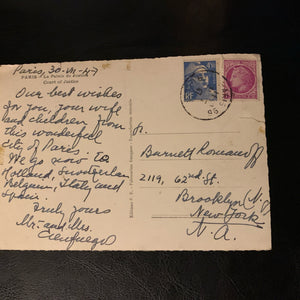 Paris, 30-VII-47
PARIS — Le Palais de Justice
Court of Justice
Our best wishes
for you, your wife
and children from
this wonderful
city of Paris.
We go now to
Holland, Switzerland
Belgium, Italy and
Spain.
Truly yours
Mr. and Mrs.
Cienfuegos
Sr.
Barnett Romanoff
2119, 62nd St.
Brooklyn (N.Y.
New York
N.A.
PARIS
RF